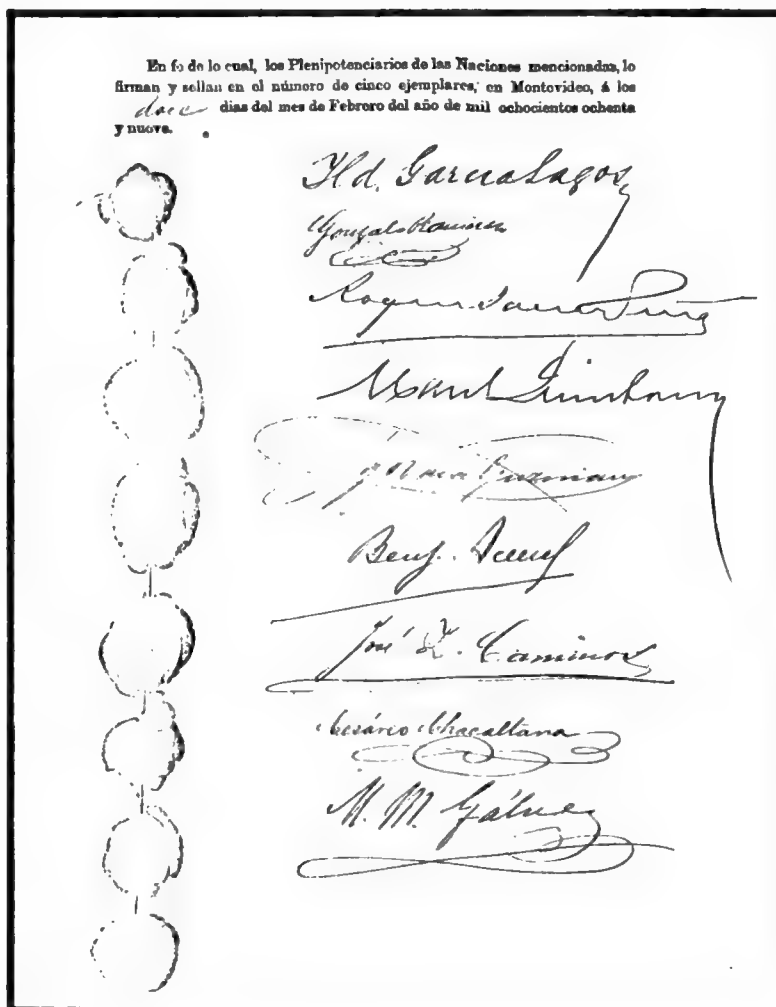 En fe de lo cual, los Plenipotenciarios de las Naciones mencionadas, lo
firman y sellan en el número de cinco ejemplares, en Montevideo, á los
doce días del mes de Febrero del año de mil ochocientos ochenta
y nueve.
Ild. García Lagos
Gonzalo Ramirez
Roque Saenz Peña
Manuel Quintana
Baca Guzman
Benj. Aceval
José Z. Caminos
Cesáreo Chacaltana
M. M. Gálvez